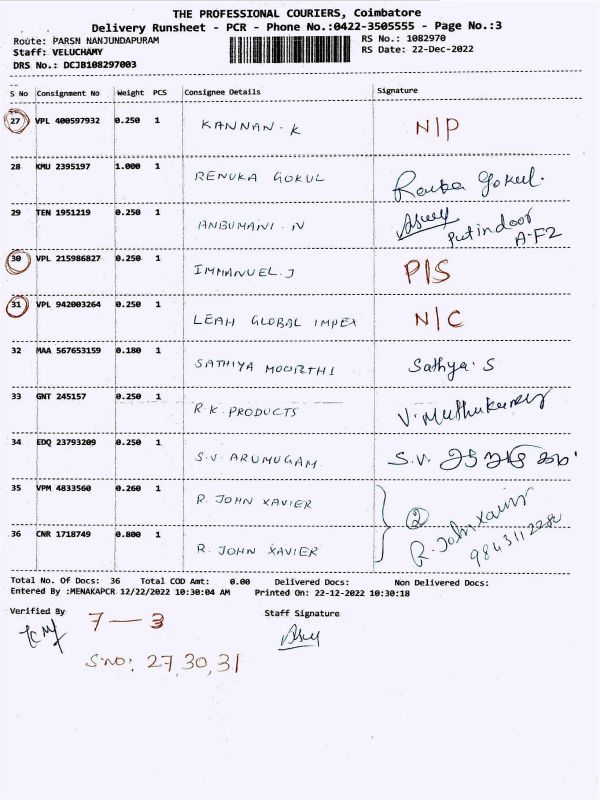 THE PROFESSIONAL COURIERS, Coimbatore
Delivery Runsheet - PCR - Phone No.:0422-3505555 - Page No.:3
Route: PARSN NANJUNDAPURAM
RS No.: 1082970
Staff: VELUCHAMY
RS Date: 22-Dec-2022
DRS No.: DCJB108297003
S No Consignment No Weight PCS Consignee Details Signature
27 VPL 400597932 0.250 1 KANNAN. K N/P
28 KMU 2395197 1.000 1 RENUKA GOKUL Gokul.
29 TEN 1951219 0.250 1 ANBUMANI. N Put indoor
A-F2
30 VPL 215986827 0.250 1 IMMANUEL. J P/S
31 VPL 942003264 0.250 1 LEAH GLOBAL IMPEX N/C
32 MAA 567653159 0.180 1 SATHIYA MOORTHI Sathya. S
33 GNT 245157 0.250 1 R.K. PRODUCTS V. Muthukumar
34 EDQ 23793209 0.250 1 S.V. ARUMUGAM. S.V.
35 VPM 4833560 0.260 1 R. JOHN XAVIER 2
R. John Xavier
36 CNR 1718749 0.800 1 R. JOHN XAVIER
Total No. Of Docs: 36 Total COD Amt: 0.00 Delivered Docs: Non Delivered Docs:
Entered By :MENAKAPCR 12/22/2022 10:30:04 AM Printed On: 22-12-2022 10:30:18
Verified By
Staff Signature
7 — 3
S.NO: 27,30,31